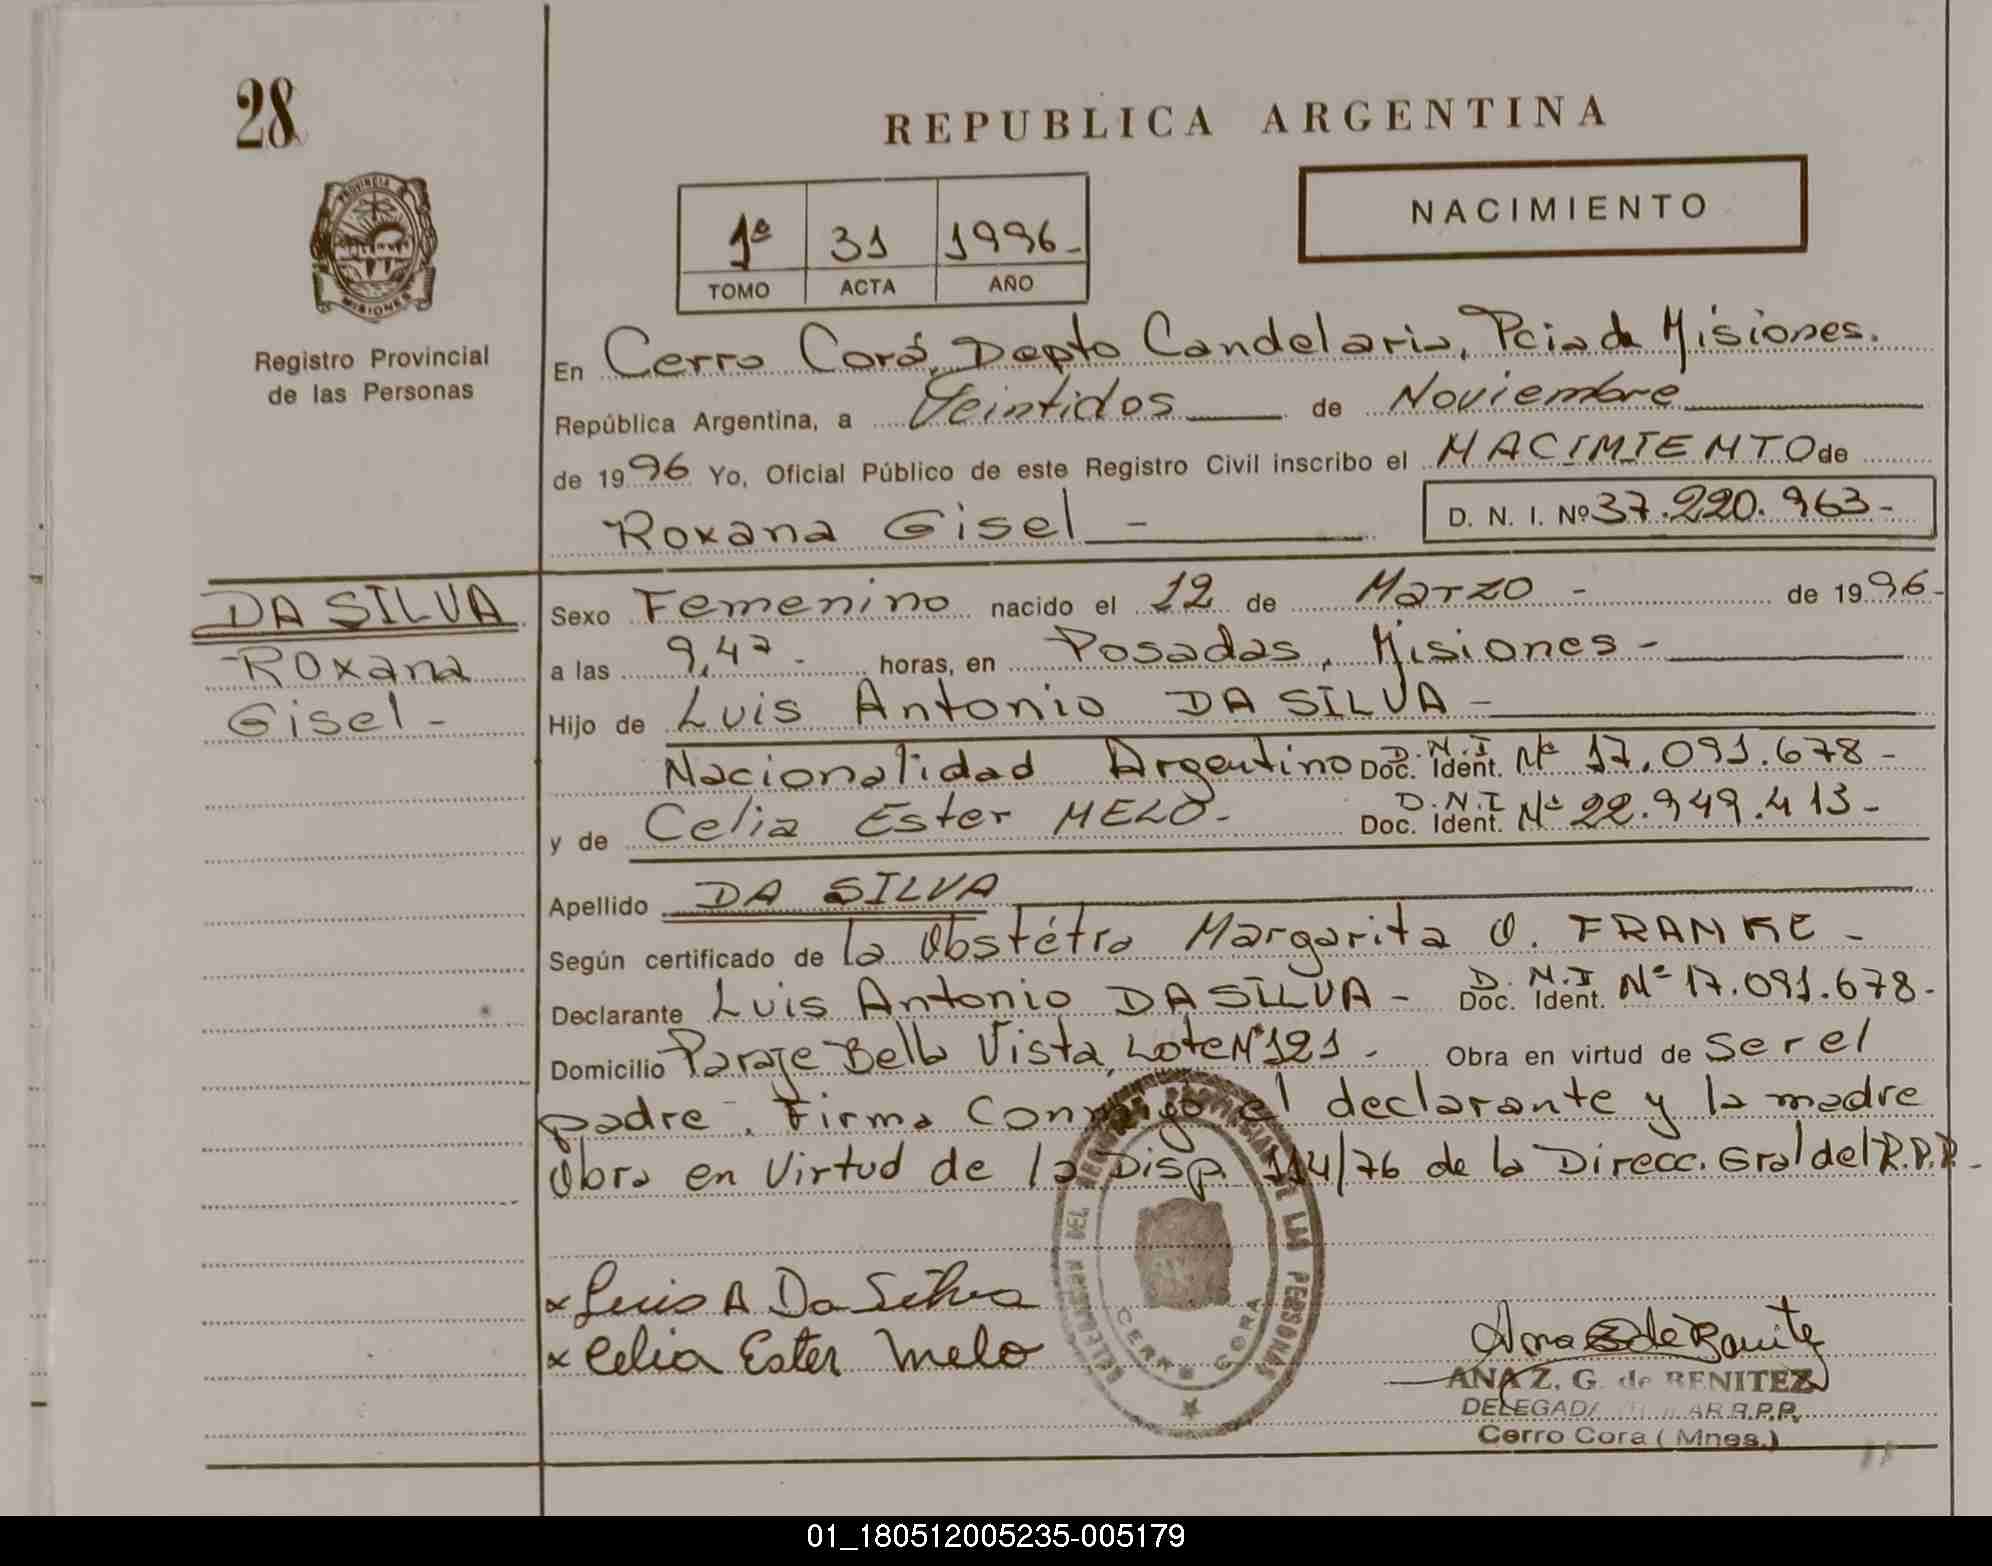 28
REPUBLICA ARGENTINA
PROVINCIA DE
MISIONES
Registro Provincial
de las Personas
1ª 31 1996-
TOMO ACTA AÑO
NACIMIENTO
En Cerro Corá, Depto Candelaria, Pcia de Misiones.
República Argentina, a Veintidos de Noviembre
de 1996 Yo, Oficial Público de este Registro Civil inscribo el NACIMIENTO de
Roxana Gisel - D. N. I. Nº 37.220.963-
DA SILVA
Roxana
Gisel -
Sexo Femenino nacido el 12 de Marzo - de 1996-
a las 9,47- horas, en Posadas, Misiones -
Hijo de Luis Antonio DA SILVA -
Nacionalidad Argentino D.N.I Doc. Ident. Nº 17.091.678-
y de Celia Ester MELO- D.N.I Doc. Ident. Nº 22.949.413-
Apellido DA SILVA
Según certificado de la Obstétra Margarita O. FRANKE -
Declarante Luis Antonio DA SILVA - D.N.I Doc. Ident. Nº 17.091.678-
Domicilio Paraje Bella Vista, Lote Nº 121 - Obra en virtud de Ser el
padre. Firma Conmigo el declarante y la madre
Obra en Virtud de la Disp. 114/76 de la Direcc. Gral del R.P.P-
DEL REGISTRO PROVINCIAL DE LAS PERSONAS
CERRO CORA
x Luis A Da Silva
x Celia Ester Melo
Ana Z G de Benitez
ANA Z. G. de BENITEZ
R.P.P.
Cerro Cora (Mnes.)
01_180512005235-005179